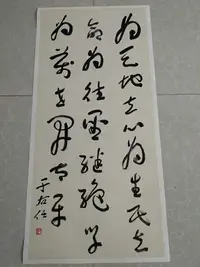 为天地立心为生民立
命为往圣继绝学
为万世开太平
于右任